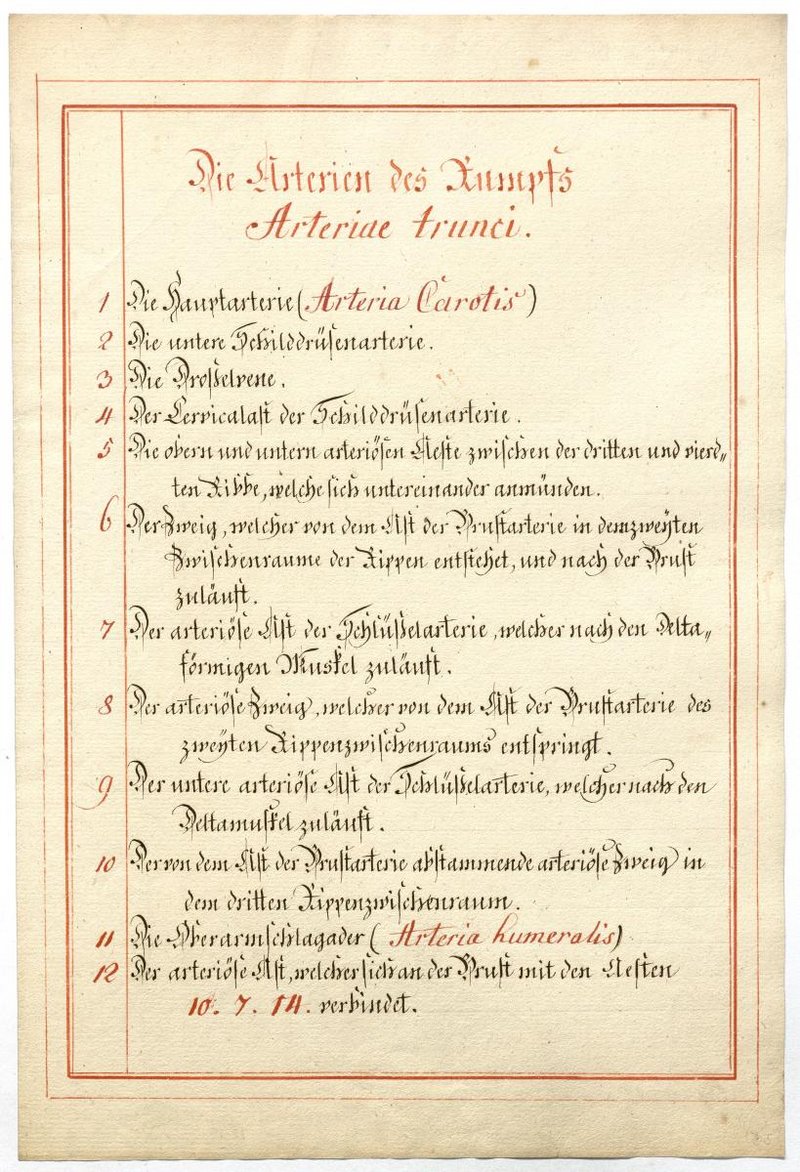 Die Arterien des Rumpfs
Arteriae trunci.
1 Die Hauptarterie (Arteria Carotis)
2 Die untere Schilddrüsenarterie.
3 Die Droßelvene.
4 Der Cervicalast der Schilddrüsenarterie.
5 Die obern und untern arteriösen Aeste zwischen der dritten und vierd„
ten Ribbe, welche sich untereinander anmünden.
6 Der Zweig, welcher von dem Ast der Brustarterie in dem zweyten
Zwischenraume der Rippen entstehet, und nach der Brust
zuläuft.
7 Der arteriöse Ast der Schlüßelarterie, welcher nach den Delta„
förmigen Muskel zuläuft.
8 Der arteriöse Zweig, welcher von dem Ast der Brustarterie des
zweyten Rippenzwischenraums entspringt.
9 Der untere arteriöse Ast der Schlüßelarterie, welcher nach den
Deltamuskel zuläuft.
10 Der von dem Ast der Brustarterie abstammende arteriöse Zweig in
dem dritten Rippenzwischenraum.
11 Die Oberarmschlagader (Arteria humeralis)
12 Der arteriöse Ast, welcher sich an der Brust mit den Aesten
10. 7. 14. verbindet.